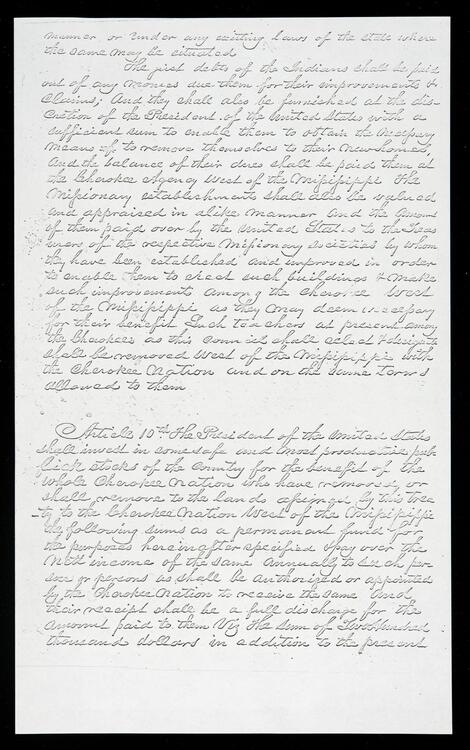 manner or under any existing laws of the State where
the same may be situated
The just debts of the Indians shall be paid
out of any monies due them for their improvements &
Claims; And they shall also be furnished at the dis-
cretion of the President of the United States with a
sufficient sum to enable them to obtain the necessary
means of, to remove themselves to their new homes,
And the balance of their dues shall be paid them at
the Cherokee Agency West of the Mississippi The
Missionary establishments shall also be valued
and appraised in alike manner and the Amount
of them paid over by the United States to the Treas
urers of the respective Missionary Societies by whom
they have been established and improved in order
to enable them to erect such buildings & make
such improvements among the Cherokees West
of the Mississippi as they may deem necessary
for their benefit Such teachers at present among
the Cherokees as this council shall select & designate
shall be removed West of the Mississippi with
the Cherokee Nation and on the same terms
allowed to them
Article 10th The President of the United States
shall invest in some safe and most productive pub
lick stocks of the Country for the benefit of the
whole Cherokee Nation who have removed or
shall remove to the lands assigned by this trea
ty to the Cherokee Nation West of the Mississippi
the following sums as a permanent fund for
the purposes hereinafter specified & pay over the
Nett income of the same annually to such per
son or persons as shall be authorized or appointed
by the Cherokee Nation to receive the same And
their receipt shall be a full discharge for the
amount paid to them Viz The sum of Two hundred
thousand dollars in addition to the present